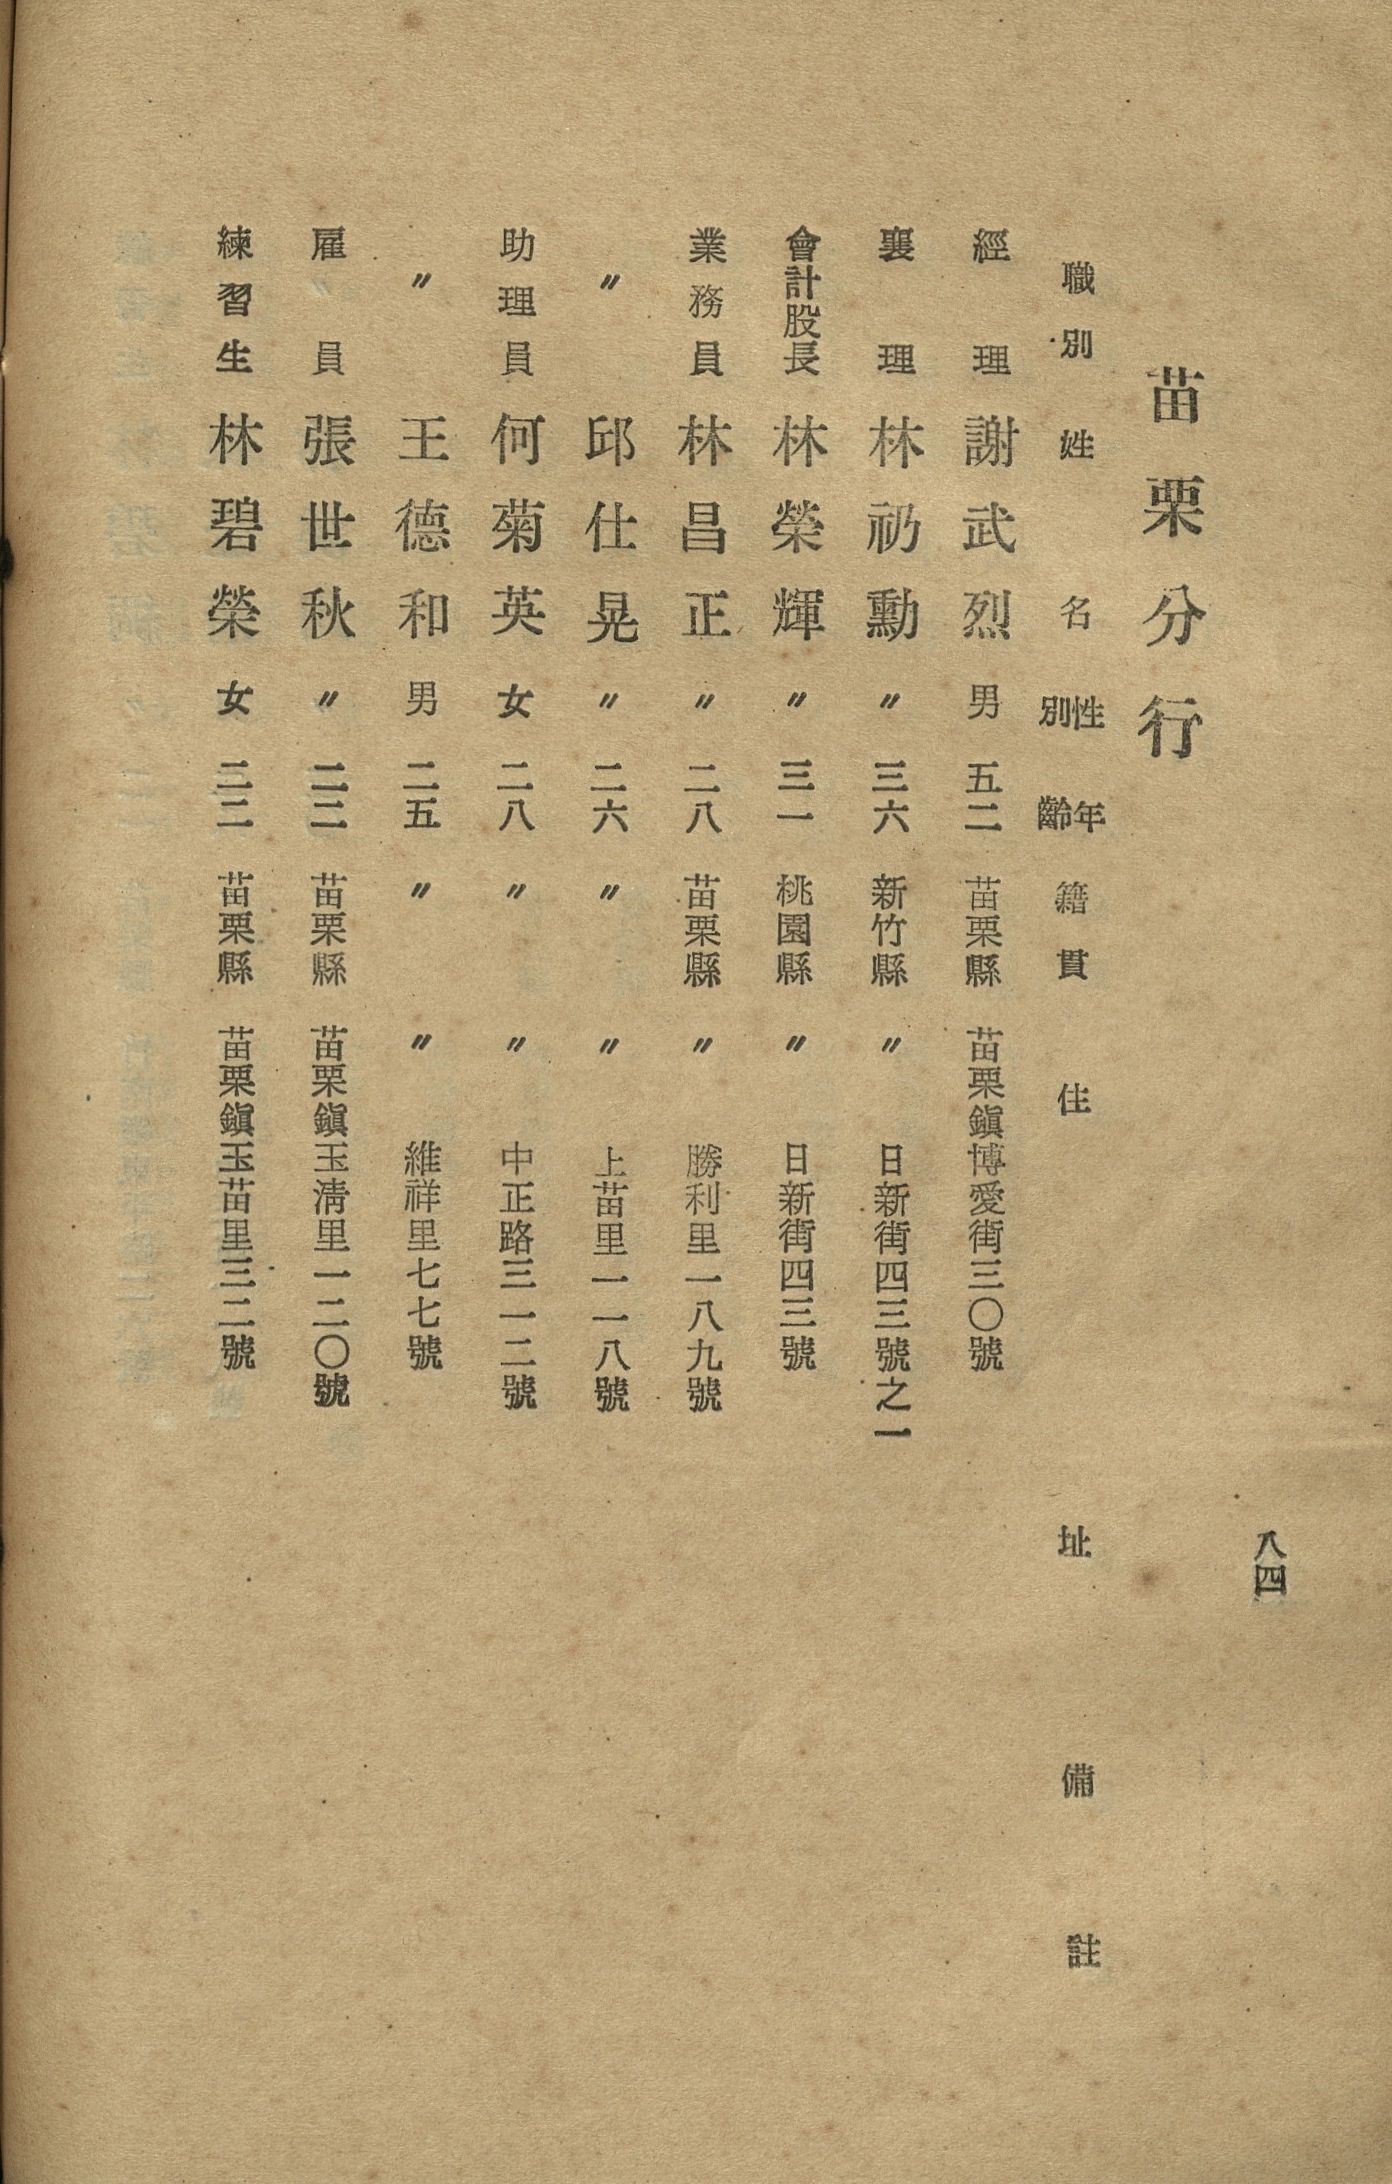 八四
苗栗分行
職別 姓名 性別 年齡 籍貫 住址 備註
經理 謝武烈 男 五二 苗栗縣 苗栗鎭博愛街三〇號
襄理 林礽勳 〃 三六 新竹縣 〃 日新街四三號之一
會計股長 林榮輝 〃 三一 桃園縣 〃 日新街四三號
業務員 林昌正 〃 二八 苗栗縣 〃 勝利里一八九號
〃 邱仕晃 〃 二六 〃 〃 上苗里一一八號
助理員 何菊英 女 二八 〃 〃 中正路三一二號
〃 王德和 男 二五 〃 〃 維祥里七七號
雇員 張世秋 〃 二二 苗栗縣 苗栗鎭玉淸里一二〇號
練習生 林碧榮 女 二二 苗栗縣 苗栗鎭玉苗里三二號